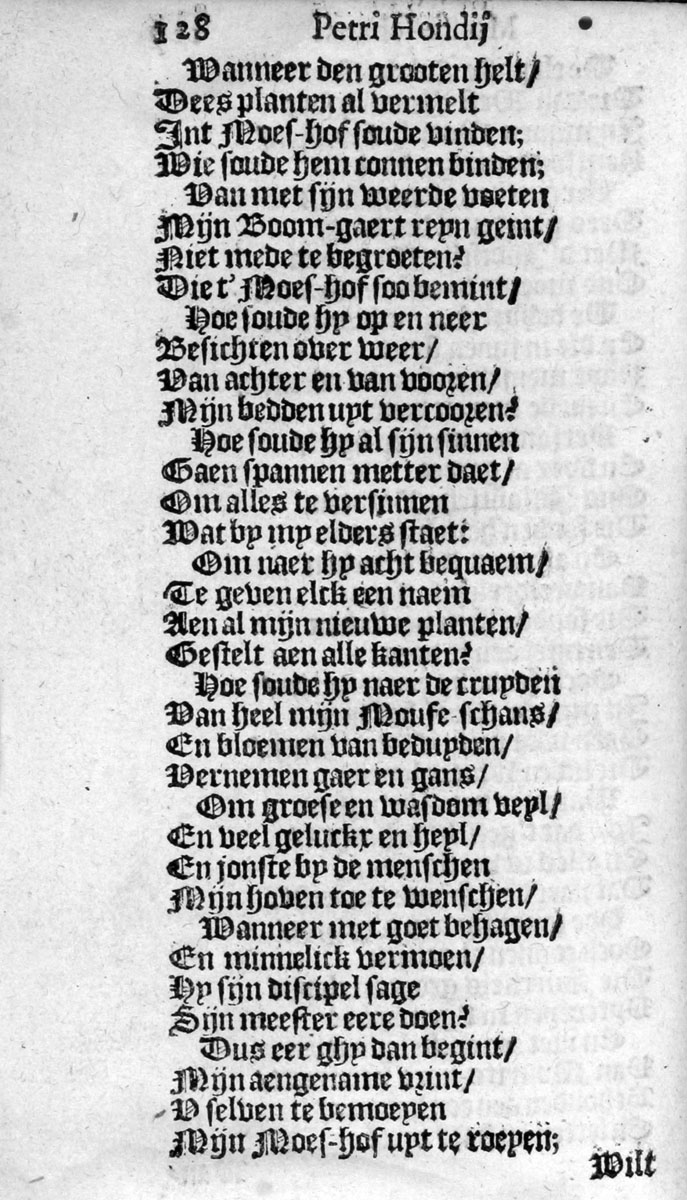 128 Petri Hondij
Wanneer den grooten helt/
Dees planten al vermelt
Int Moes-hof soude vinden;
Wie soude hem connen binden;
Van met sijn weerde voeten
Mijn Boom-gaert reyn geint/
Niet mede te begroeten?
Die t' Moes-hof soo bemint/
Hoe soude hy op en neer
Besichten over weer/
Van achter en van vooren/
Mijn bedden uyt vercooren?
Hoe soude hy al sijn sinnen
Gaen spannen metter daet/
Om alles te versinnen
Wat by my elders staet:
Om naer hy acht bequaem/
Te geven elck een naem
Aen al mijn nieuwe planten/
Gestelt aen alle kanten?
Hoe soude hy naer de cruyden
Van heel mijn Moufe-schans/
En bloemen van beduyden/
Vernemen gaer en gans/
Om groese en wasdom veyl/
En veel geluckx en heyl/
En jonste by de menschen
Mijn hoven toe te wenschen/
Wanneer met goet behagen/
En minnelick vermoen/
Hy sijn discipel sage
Sijn meester eere doen?
Dus eer ghy dan begint/
Mijn aengename vrint/
V selven te bemoeyen
Mijn Moes-hof uyt te roeyen;
Wilt